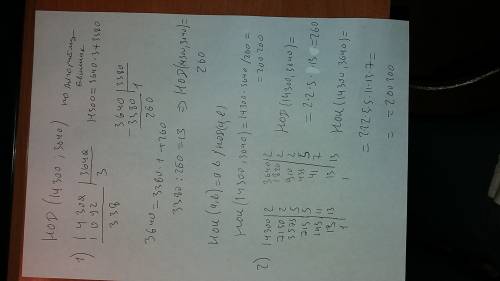 НОД (14300 ; 3640)
1) 1430∅ | 364∅
1092 | 3
338
14300 = 3640·3 + 3380
3640 | 3380
−3380 | 1
260
3640 = 3380·1 + 260
3380 : 260 = 13 ⇒ НОД(14300, 3640) =
260
НОК (a,b) = a·b / НОД(a,b)
НОК (14300, 3640) = 14300·3640 / 260 =
= 200200
2)
14300 | 2
7150 | 2
3575 | 5
715 | 5
143 | 11
13 | 13
1
3640 | 2
1820 | 2
910 | 2
455 | 5
91 | 7
13 | 13
1
НОД (14300, 3640) =
= 2·2·5·13 = 260
НОК (14300, 3640) =
= 2·2·2·5·5·11·13·7 =
= 200200